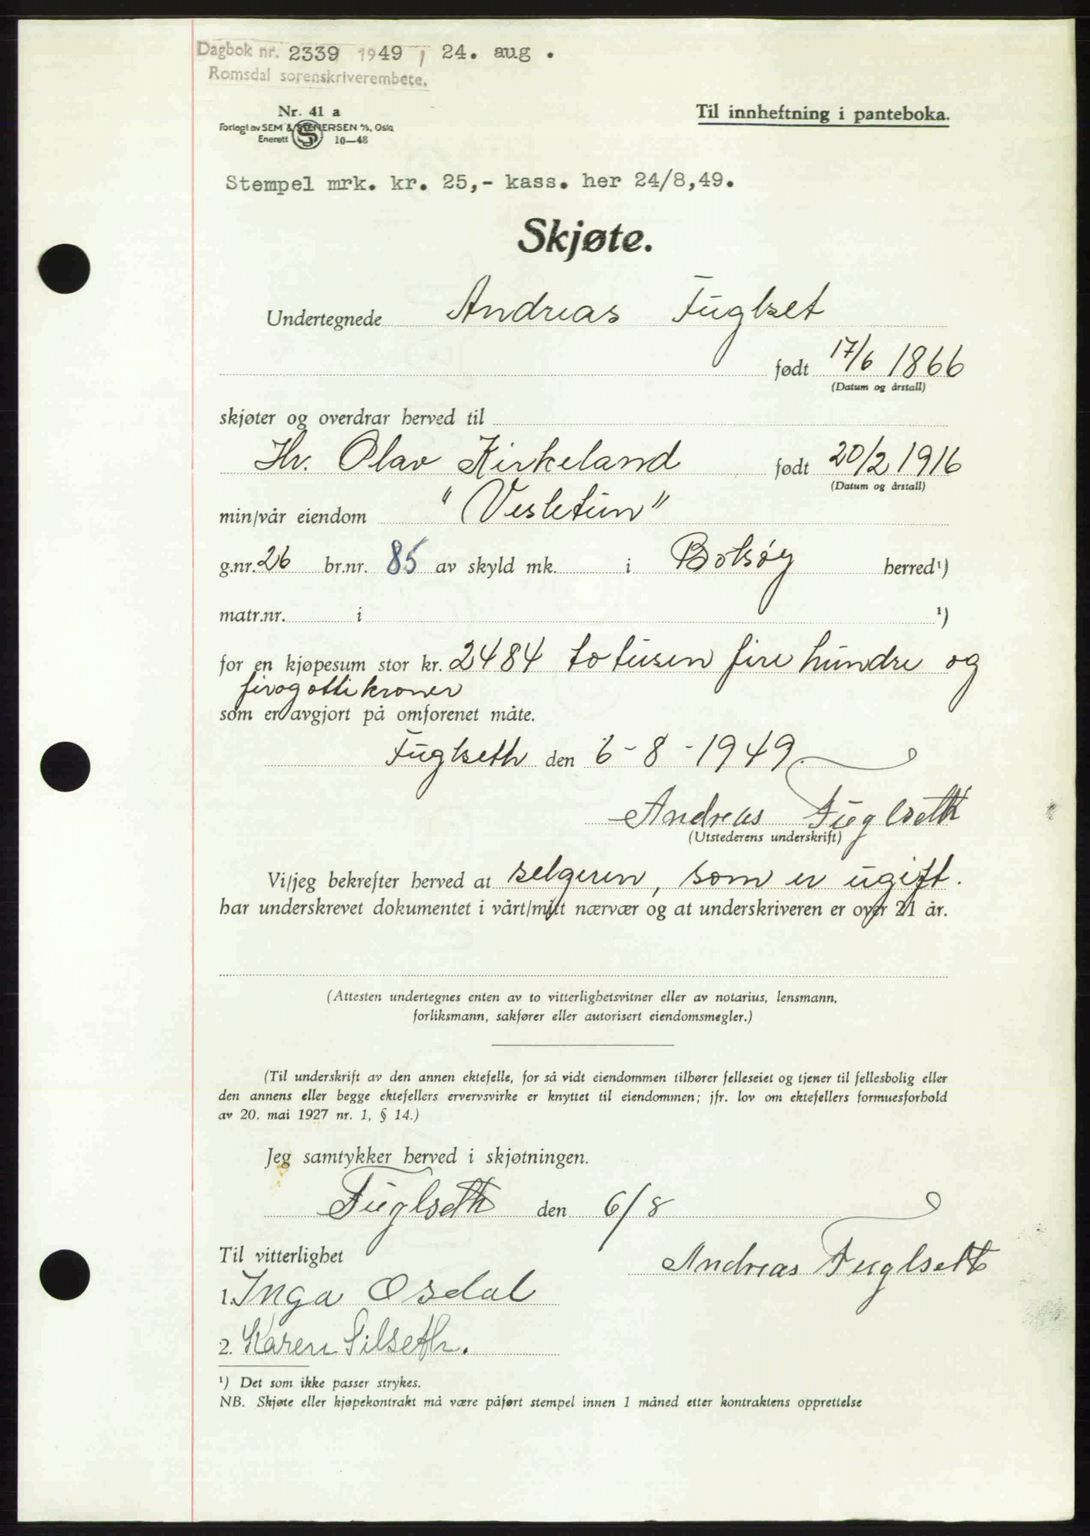 Dagbok nr. 2339 1949, 24. aug.
Romsdal sorenskriverembete.
Nr. 41 a
Til innheftning i panteboka.
Forlagt av SEM & STENERSEN A/S, Oslo
Enerett 10—48
Stempel mrk. kr. 25,- kass. her 24/8,49.
Skjøte.
Undertegnede Andreas Fuglset
født 17/6 1866
(Datum og årstall)
skjøter og overdrar herved til
Hr. Olav Kirkeland født 20/2 1916
(Datum og årstall)
min/vår eiendom "Vesletun"
g.nr. 26 br.nr. 85 av skyld mk. i Bolsøy herred¹)
matr.nr. i ¹)
for en kjøpesum stor kr. 2484 totusen fire hundre og
firogottikroner
som er avgjort på omforenet måte.
Fuglseth den 6-8-1949.
Andreas Fuglseth
(Utstederens underskrift)
Vi/jeg bekrefter herved at selgeren, som er ugift.
har underskrevet dokumentet i vårt/mitt nærvær og at underskriveren er over 21 år.
(Attesten undertegnes enten av to vitterlighetsvitner eller av notarius, lensmann,
forliksmann, sakfører eller autorisert eiendomsmegler.)
(Til underskrift av den annen ektefelle, for så vidt eiendommen tilhører felleseiet og tjener til fellesbolig eller
den annens eller begge ektefellers ervervsvirke er knyttet til eiendommen; jfr. lov om ektefellers formuesforhold
av 20. mai 1927 nr. 1, § 14.)
Jeg samtykker herved i skjøtningen.
Fuglseth den 6/8
Til vitterlighet
Andreas Fuglseth
1. Inga Osdal
2. Karen Silseth.
¹) Det som ikke passer strykes.
NB. Skjøte eller kjøpekontrakt må være påført stempel innen 1 måned etter kontraktens opprettelse